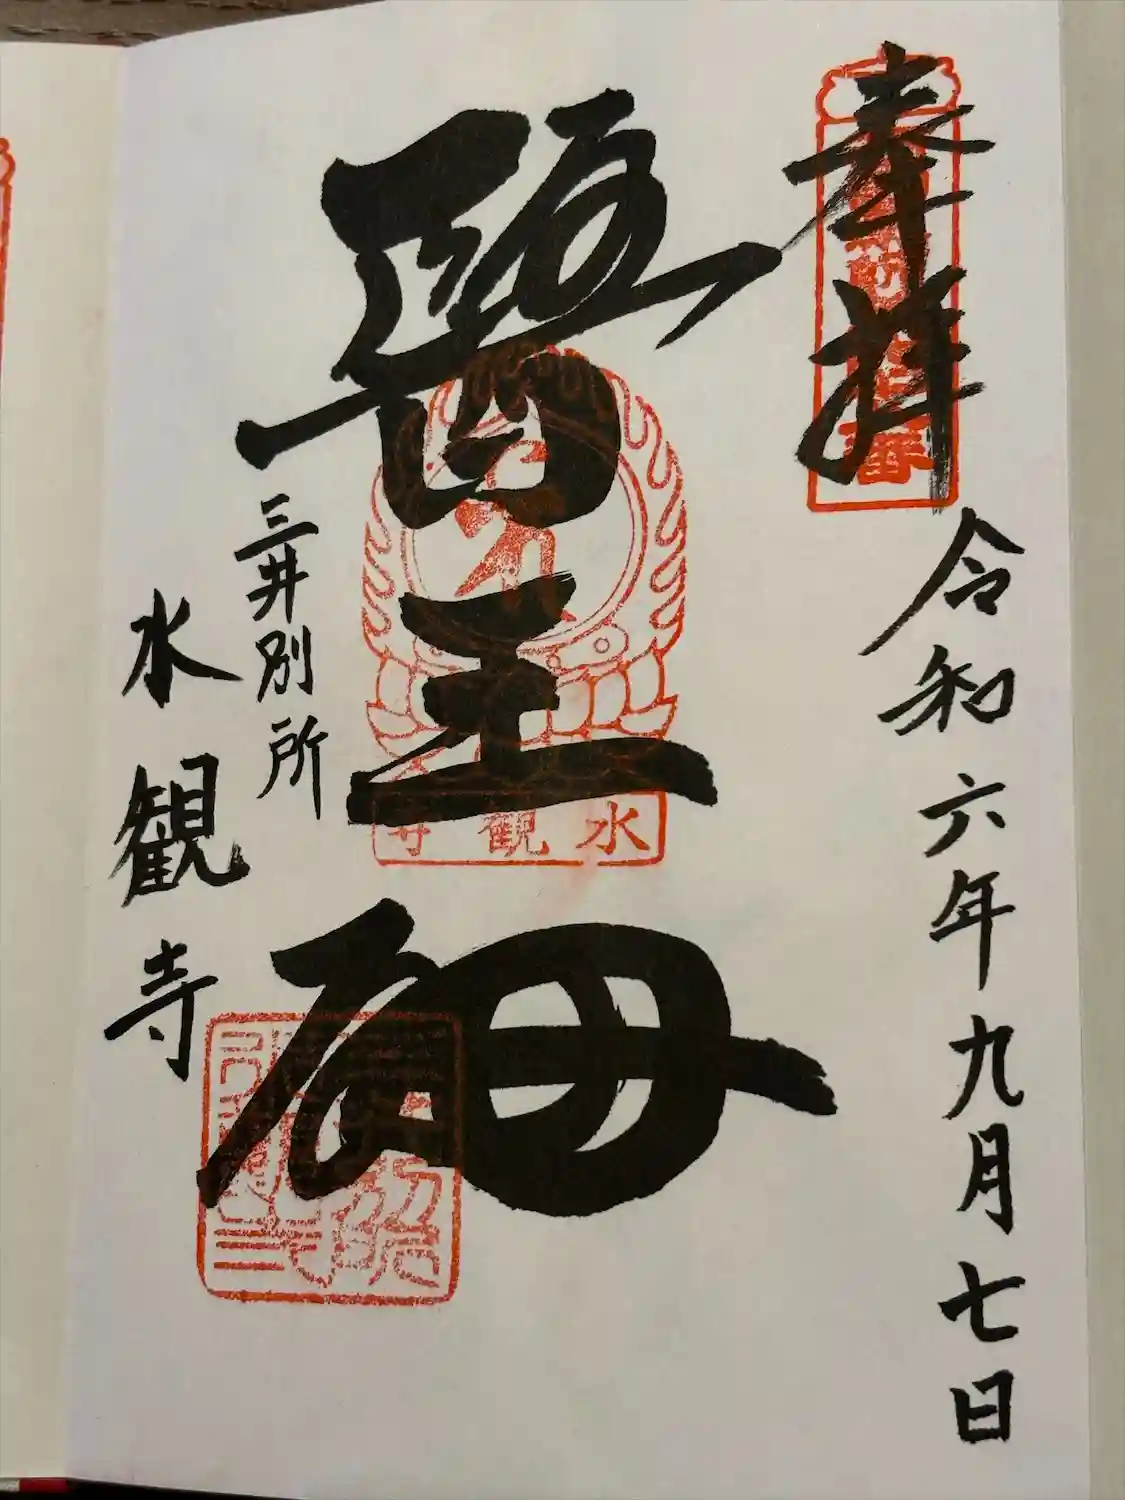 奉拝
令和六年九月七日
醫王殿
三井別所
水観寺
水觀寺